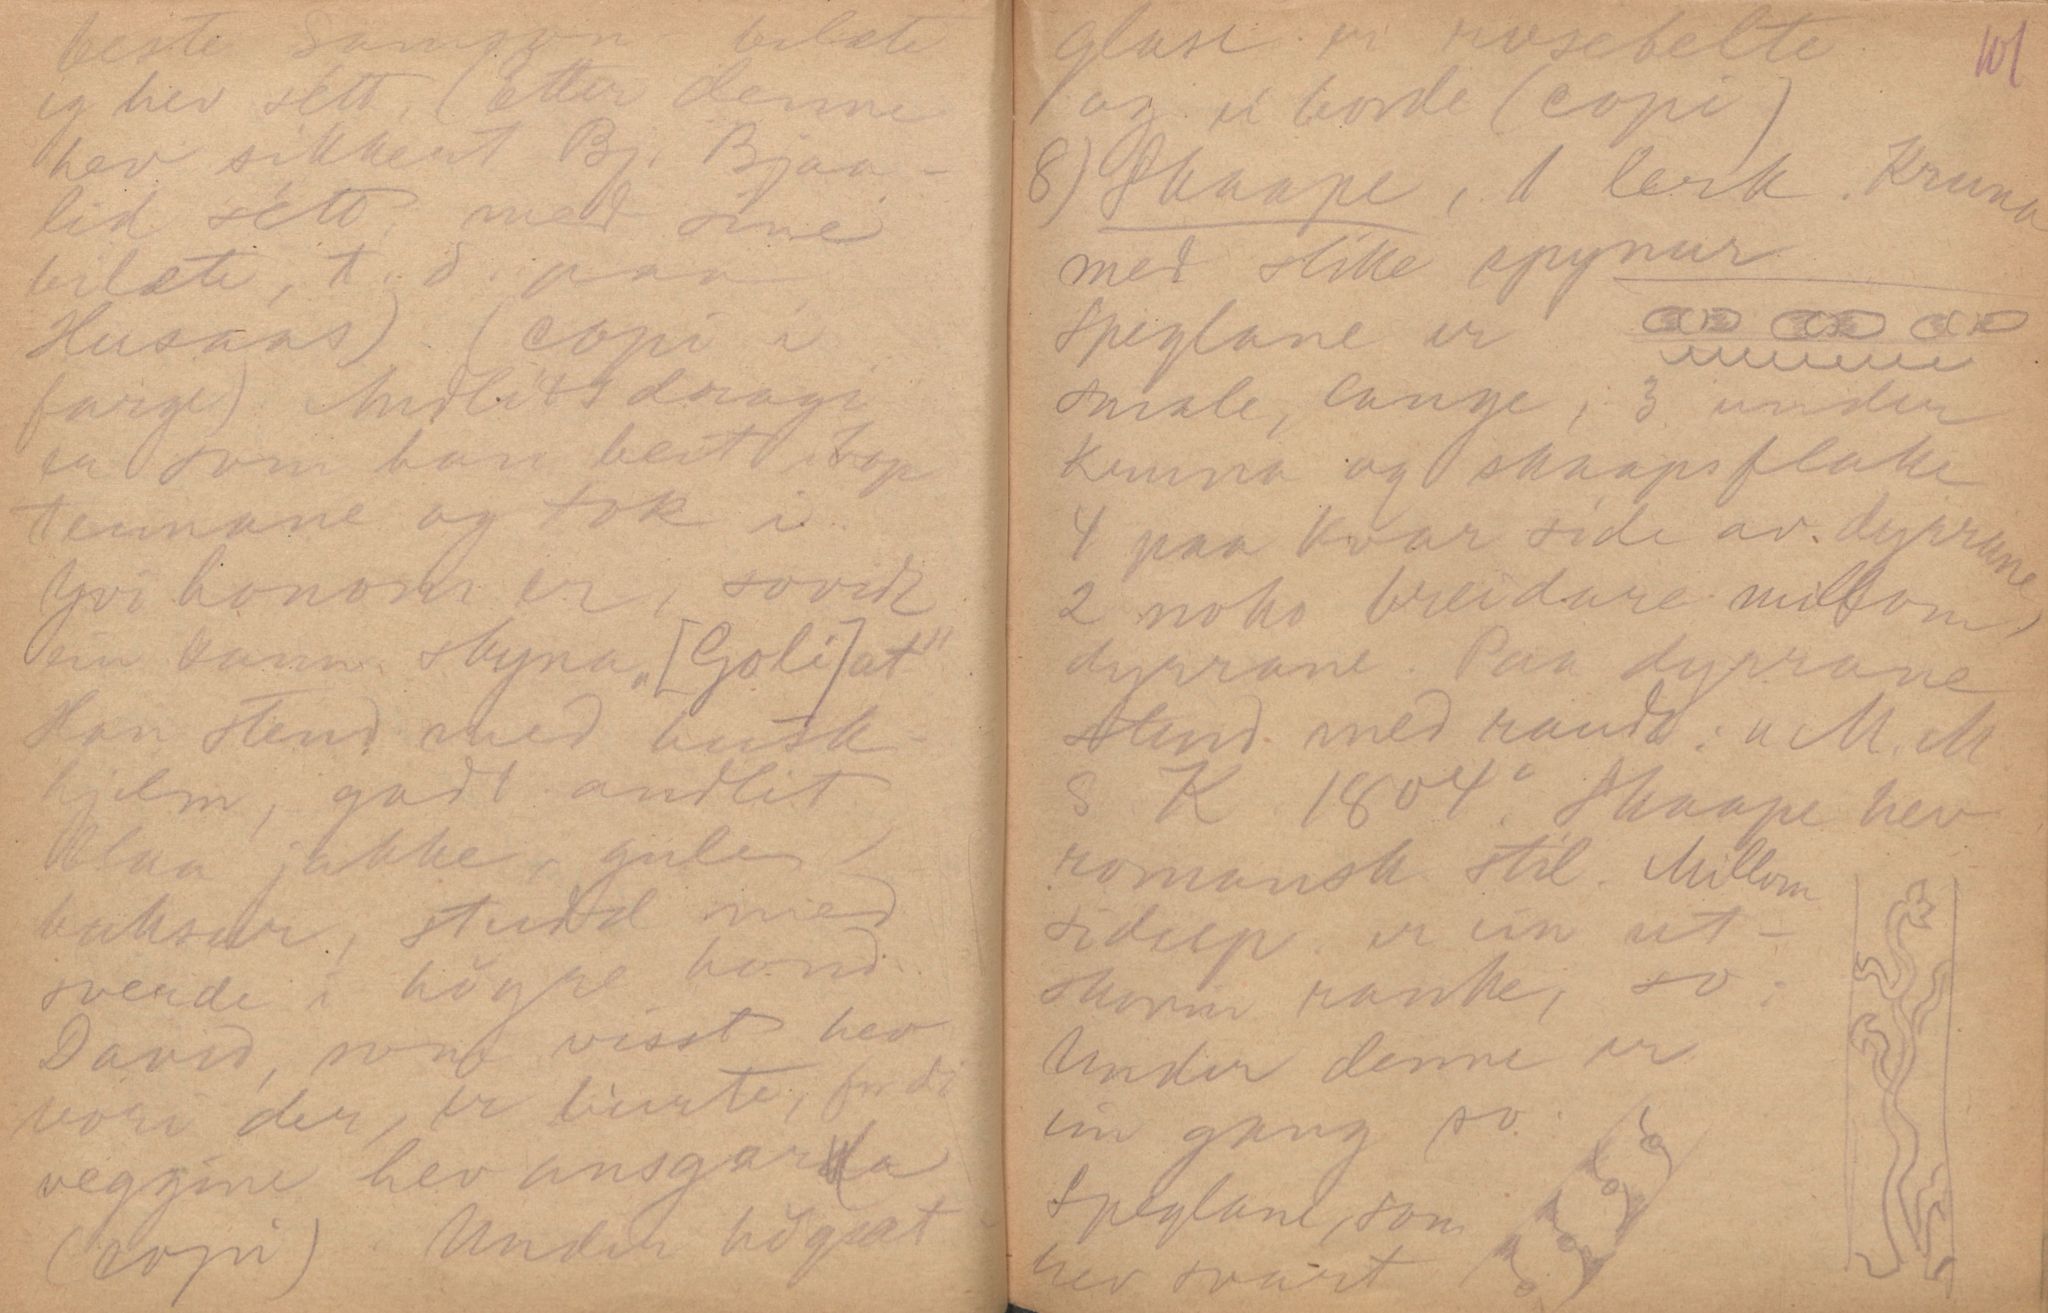 beste Samson bilæte
eg hev sétt. (Etter denne
hev sikkert Bj. Bjaa-
lid sétt, med sine
bilæte, t. d. paa
Husaas) (copi i
farge) Andlitsdragi
som han beit ihop
tennane og tok i.
Yvi honom er, sovidt
ein kann skyna, "[Goli]at"
Han stend med busk-
hjelm, godt andlit
blaa jakke, gule
buksur, studd med
sverde i høgre hond.
David, som visst hev
vori der, er burte, fordi
veggine hev
(copi). Under høgset
glase er rosebelte
og ei borde (copi)
8) Skaape, 1 lerk. Kruna
med slike spynur
Speglane er
smale, lange, 3 under
Kruna og skaapsflake
4 paa kvar side av dyrrane,
2 noko breidare millom
dyrrane. Paa dyrrane
stend med raudt: "M. M
S K 1804". Skaape hev
romansk stil. Millom
er ein ut-
skorin ranke, so:
Under denne er
ein gang so:
Speglane, som
hev svart
101